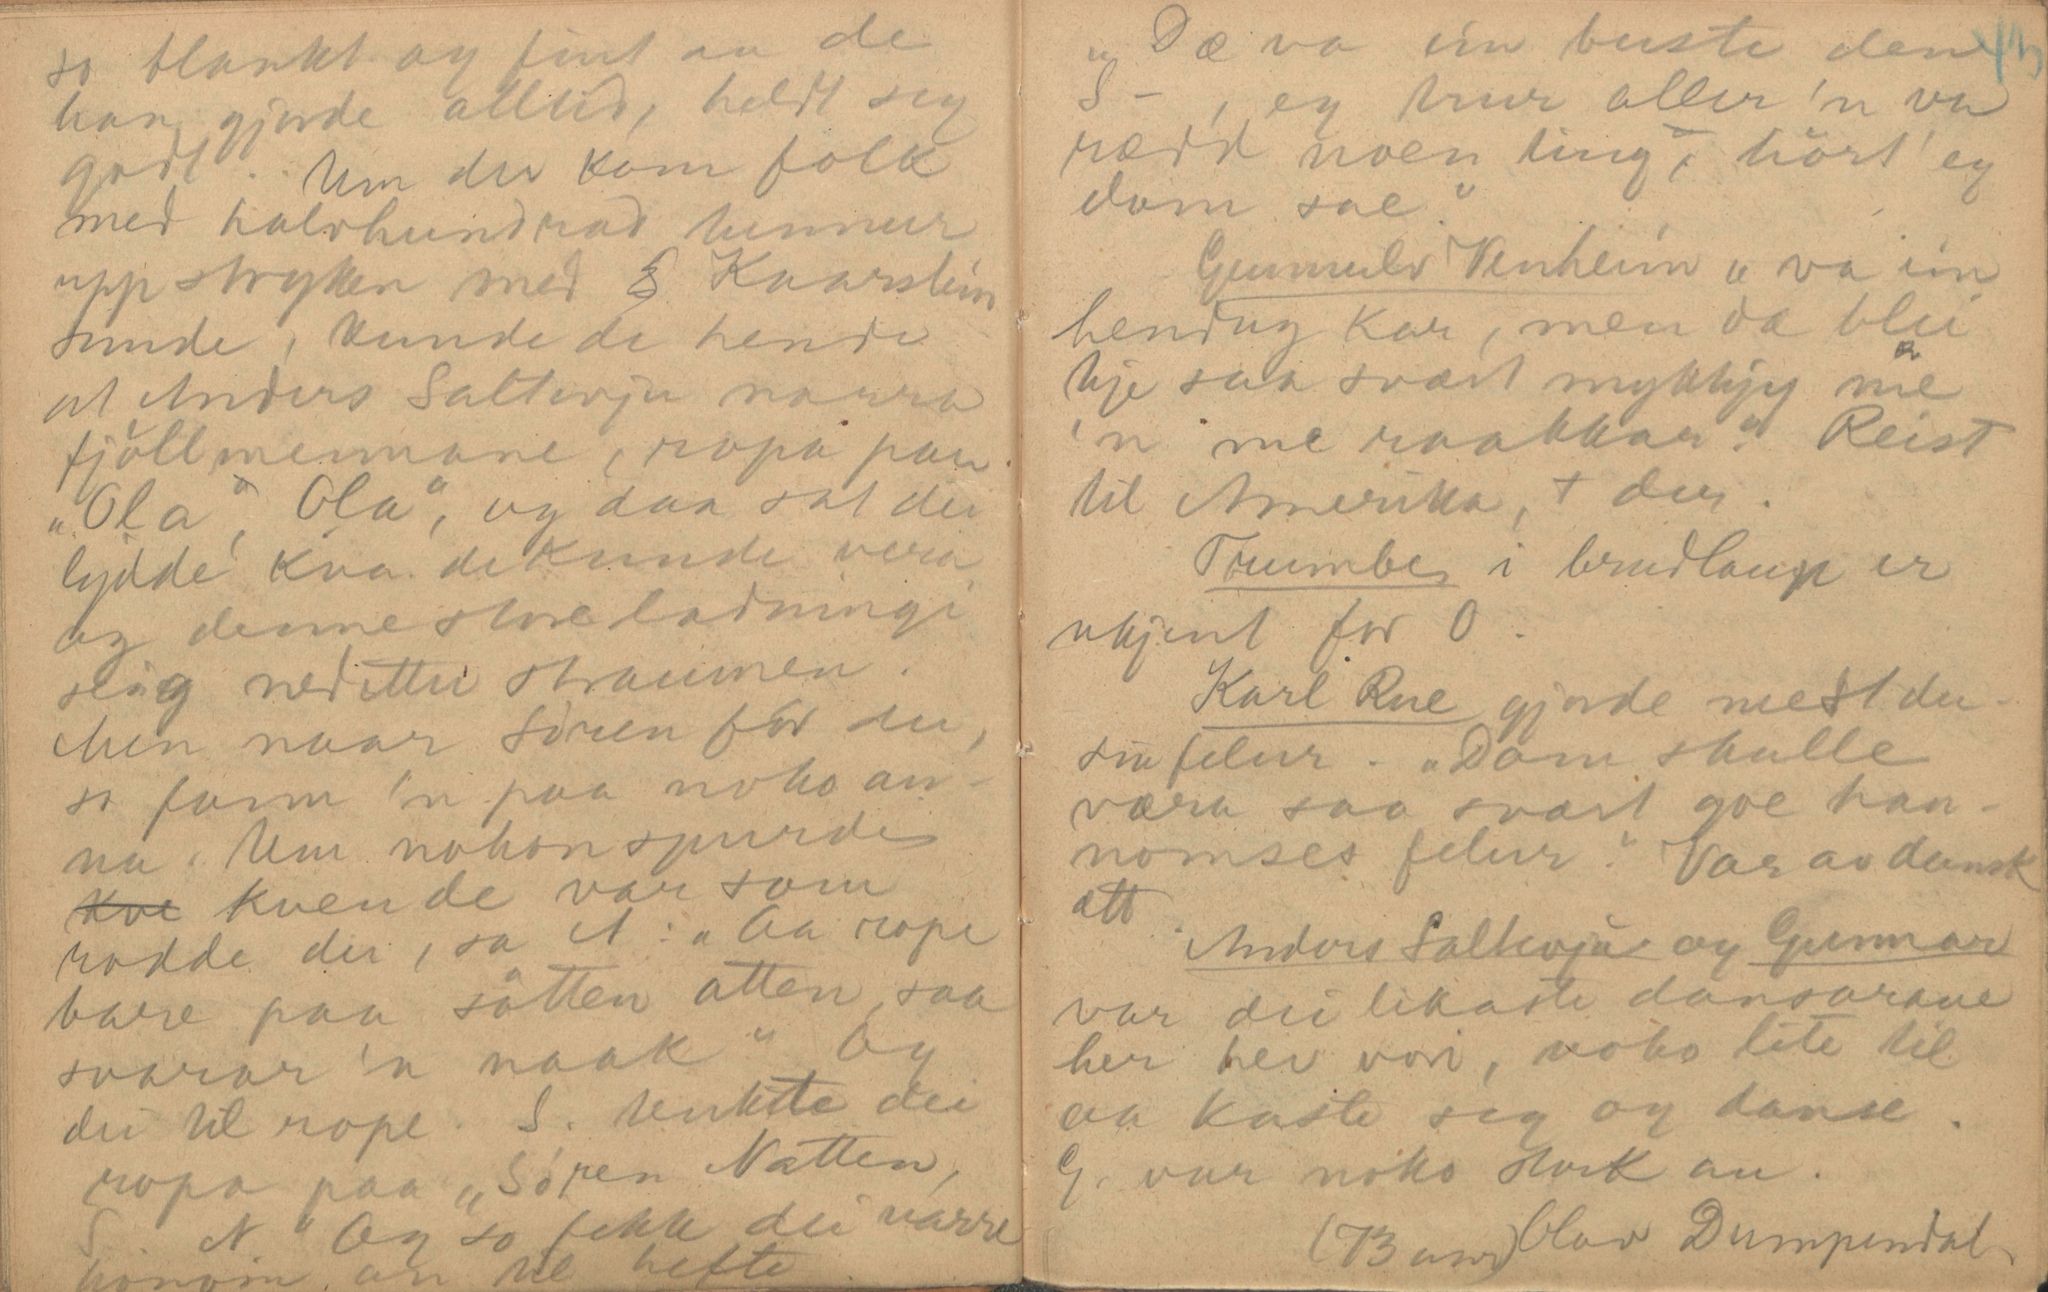 so blankt og fint aa de
han gjorde alltid, heldt seg
godt. Um der kom folk
med halvhundrad tunnur
uppstryken med Kaarstein
sunde, kunde de hende
at Anders Saltevju narra
fjøllmennane, ropa paa
"Ola", Ola", og daa sat dei
lydde kva de kunde vera
og denne store ladningi
seig nedetter straumen.
Men naar Søren for der,
so fann 'n paa noko an-
na. Um nokon spurde
kven de var som
rodde der, sa A: "Aa rope
bare paa søtten atten, saa
svarar 'n naak" Og
dei til rope. S. tenkte dei
ropa paa "Søren Natten,
S. N." Og so fekk dei varre
honom an til hefte.
43
"Dæ va ein beiste den
S-, eg trur aller 'n va
rædd noen ting, hørt' eg
dom sae."
Gunnulv Venheim "va ein
hendug kar, men dæ blei
kje saa svært mykkjy me
'n me raakkar." Reist
til Amerika, † der.
Trumbe i brudlaup er
ukjent for O.
Karl Rue gjorde mest der-
sin felur. "Dom skulle
væra saa svært goe han-
nomses felur." Var av dansk
ætt.
Anders Saltevju og Gunnar
var dei likaste dansarane
her hev vori, noko lite til
aa kaste seg og danse.
G. var noko stork au.
(B um) Olav Dumpendal